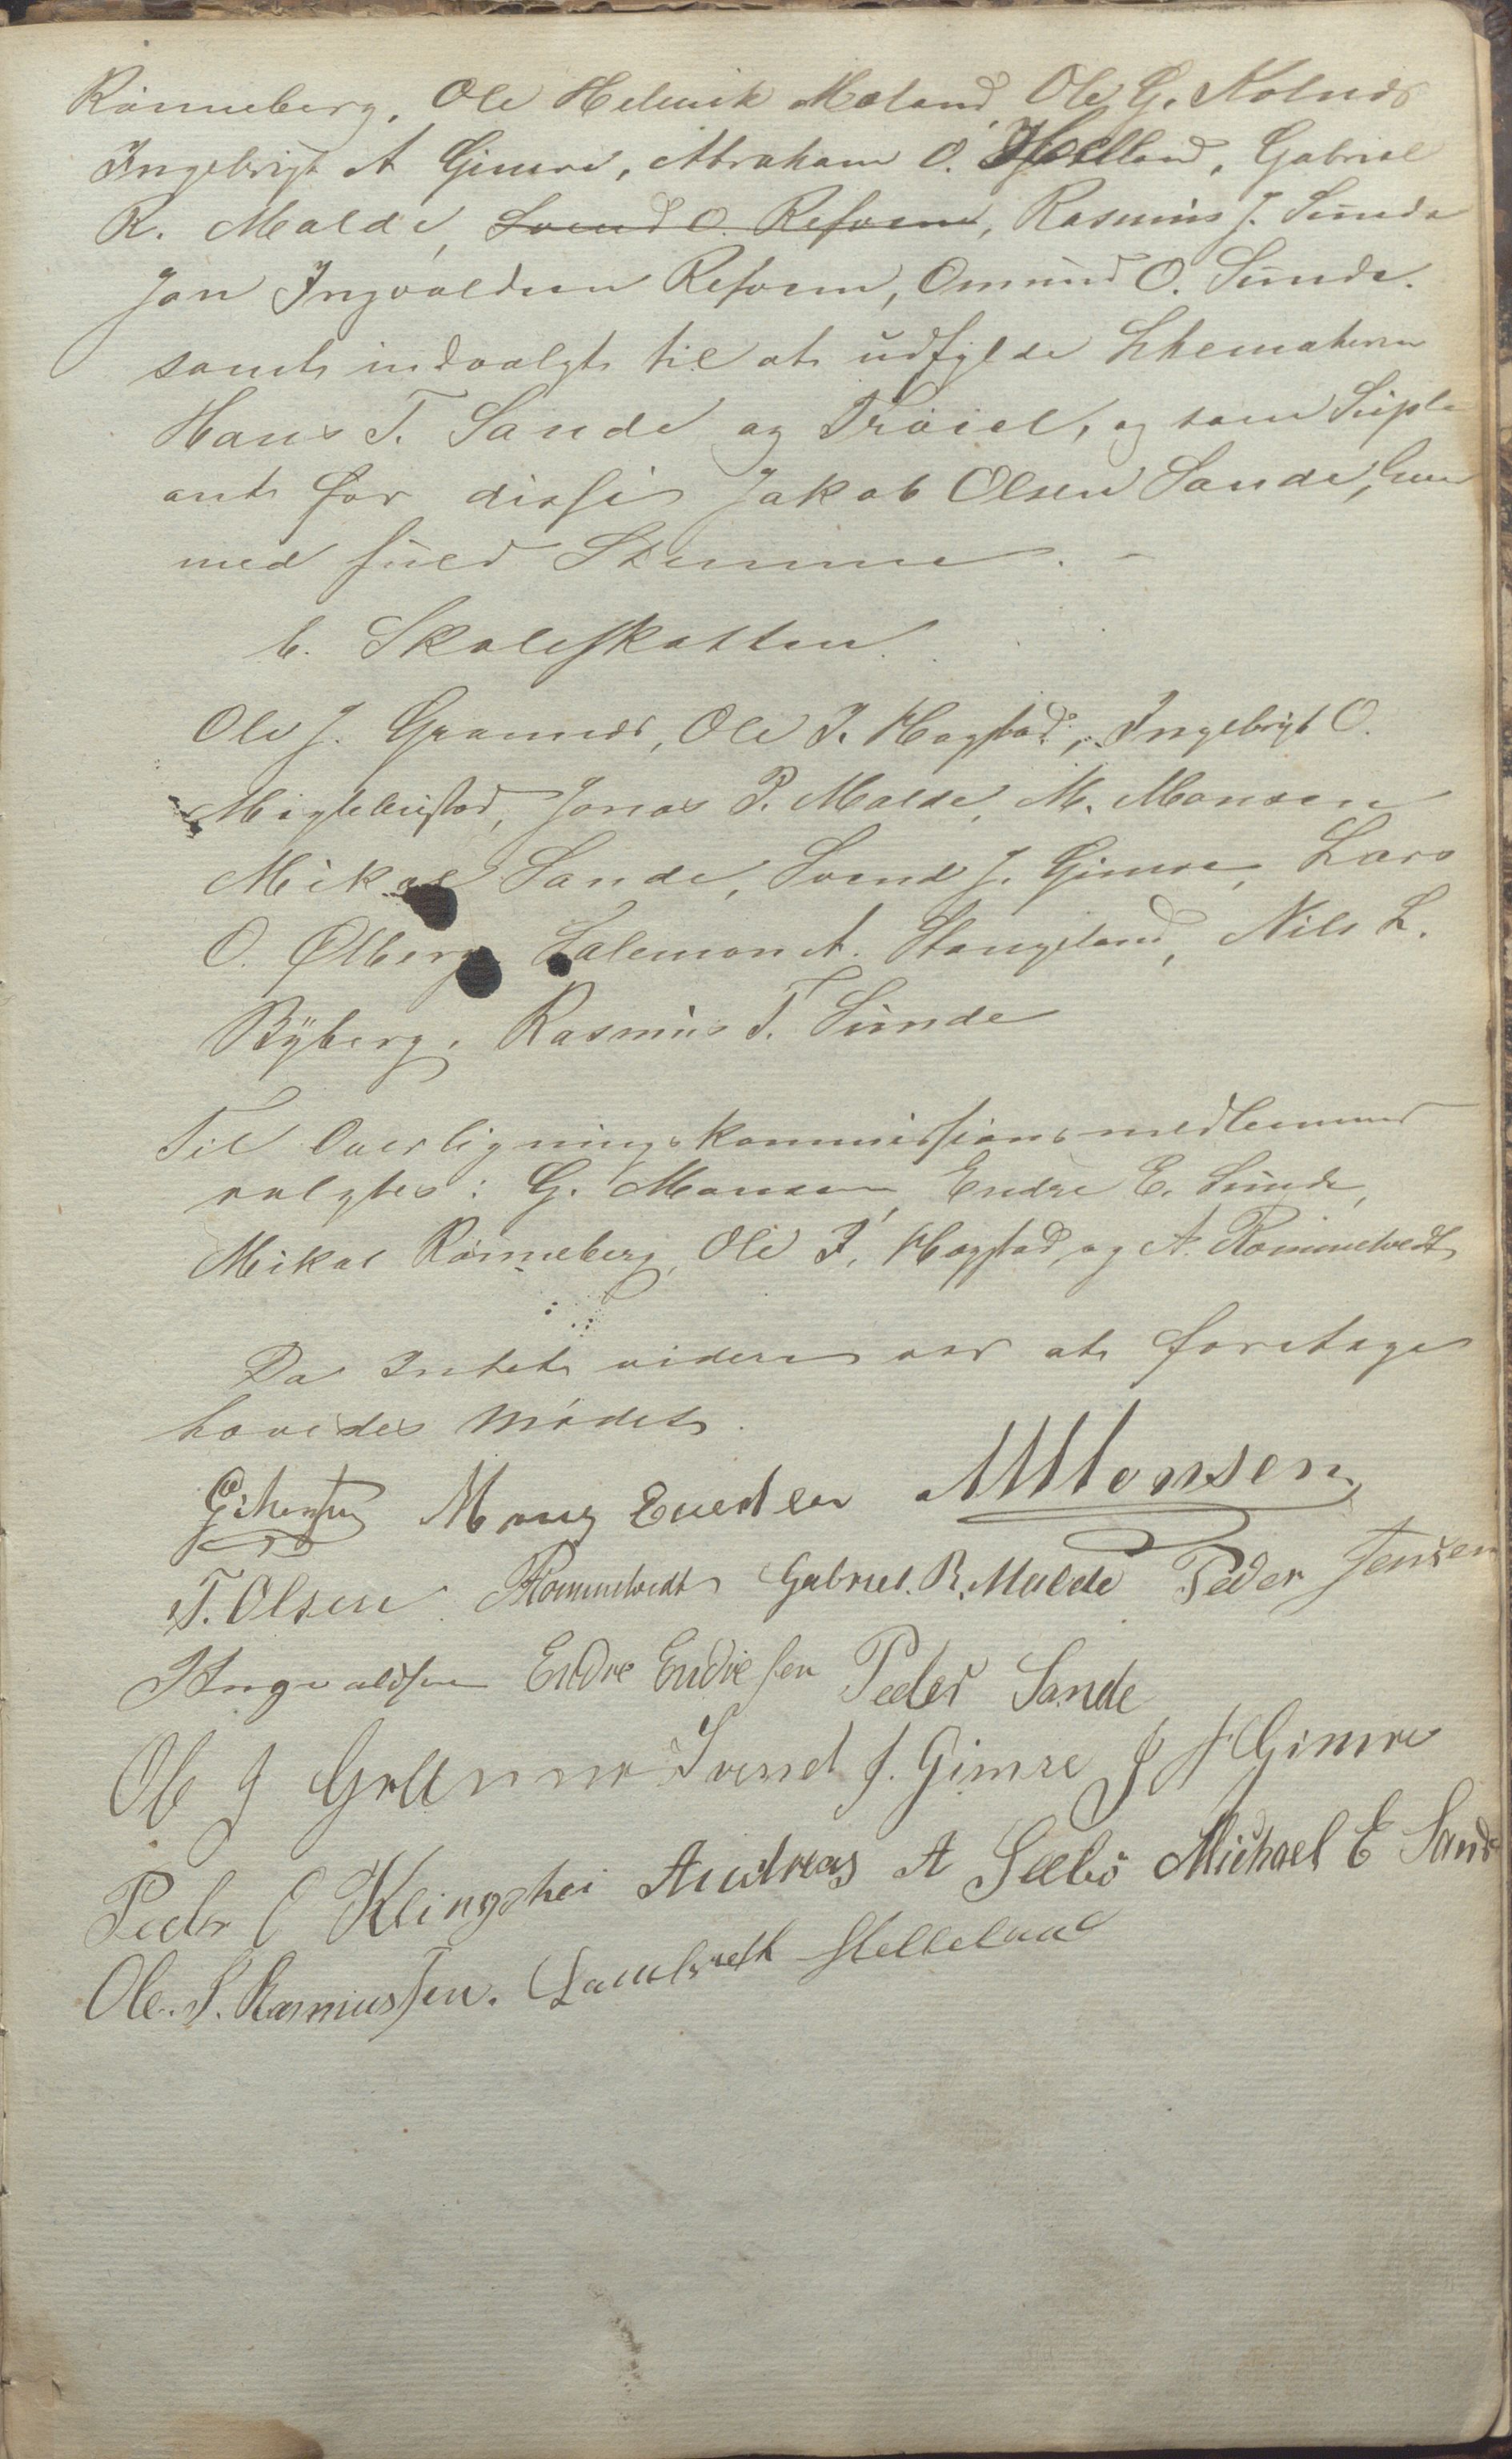 Rønneberg, Ole Helmik Meland, Ole G. Kolnes
Ingebrigt A Gimre, Abraham O. Helland, Gabriel
R. Malde, Svend O. Refsem, Rasmus J. Sunde
Jon Ingvaldsen Refsem, Omund O. Sunde.
samt indvalgt til at udfylde Schematerne
Hans T. Sande og Trøiel, og som Suple
ant for disse Jakob Olsen Sande,
med fuld Stemme. –
b. Skoleskatten.
Ole J. Grannes, Ole I. Hagstad, Ingebrigt O.
Myklebustad, Jonas P. Malde, M. Monsen
Mikal Sande, Svend J. Gimre, Lars
O. Ølberg Salemon A. Stangeland, Nils L.
Byberg, Rasmus T. Sunde
Til Overligningskommissionsmedlemmer
valgtes: G. Monsen, Endre E. Sunde,
Mikal Rønneberg, Ole I. Hagstad og A. Rommetvedt
Da Intet videre var at foretage
hævedes Mødet.
Mons Evertsen MMonsen
T. Olsen. Rommetvedt Gabriel. R. Malde Peder Jensen
Ingvaldsen Endre Endresen Peder Sande
Ole J Grannes Svend J. Gimre J A Gimre
Peder C Klingshei Andreas A Seebø Michael E Sande
Ole. S. Rasmussen. Lambreth Helleland